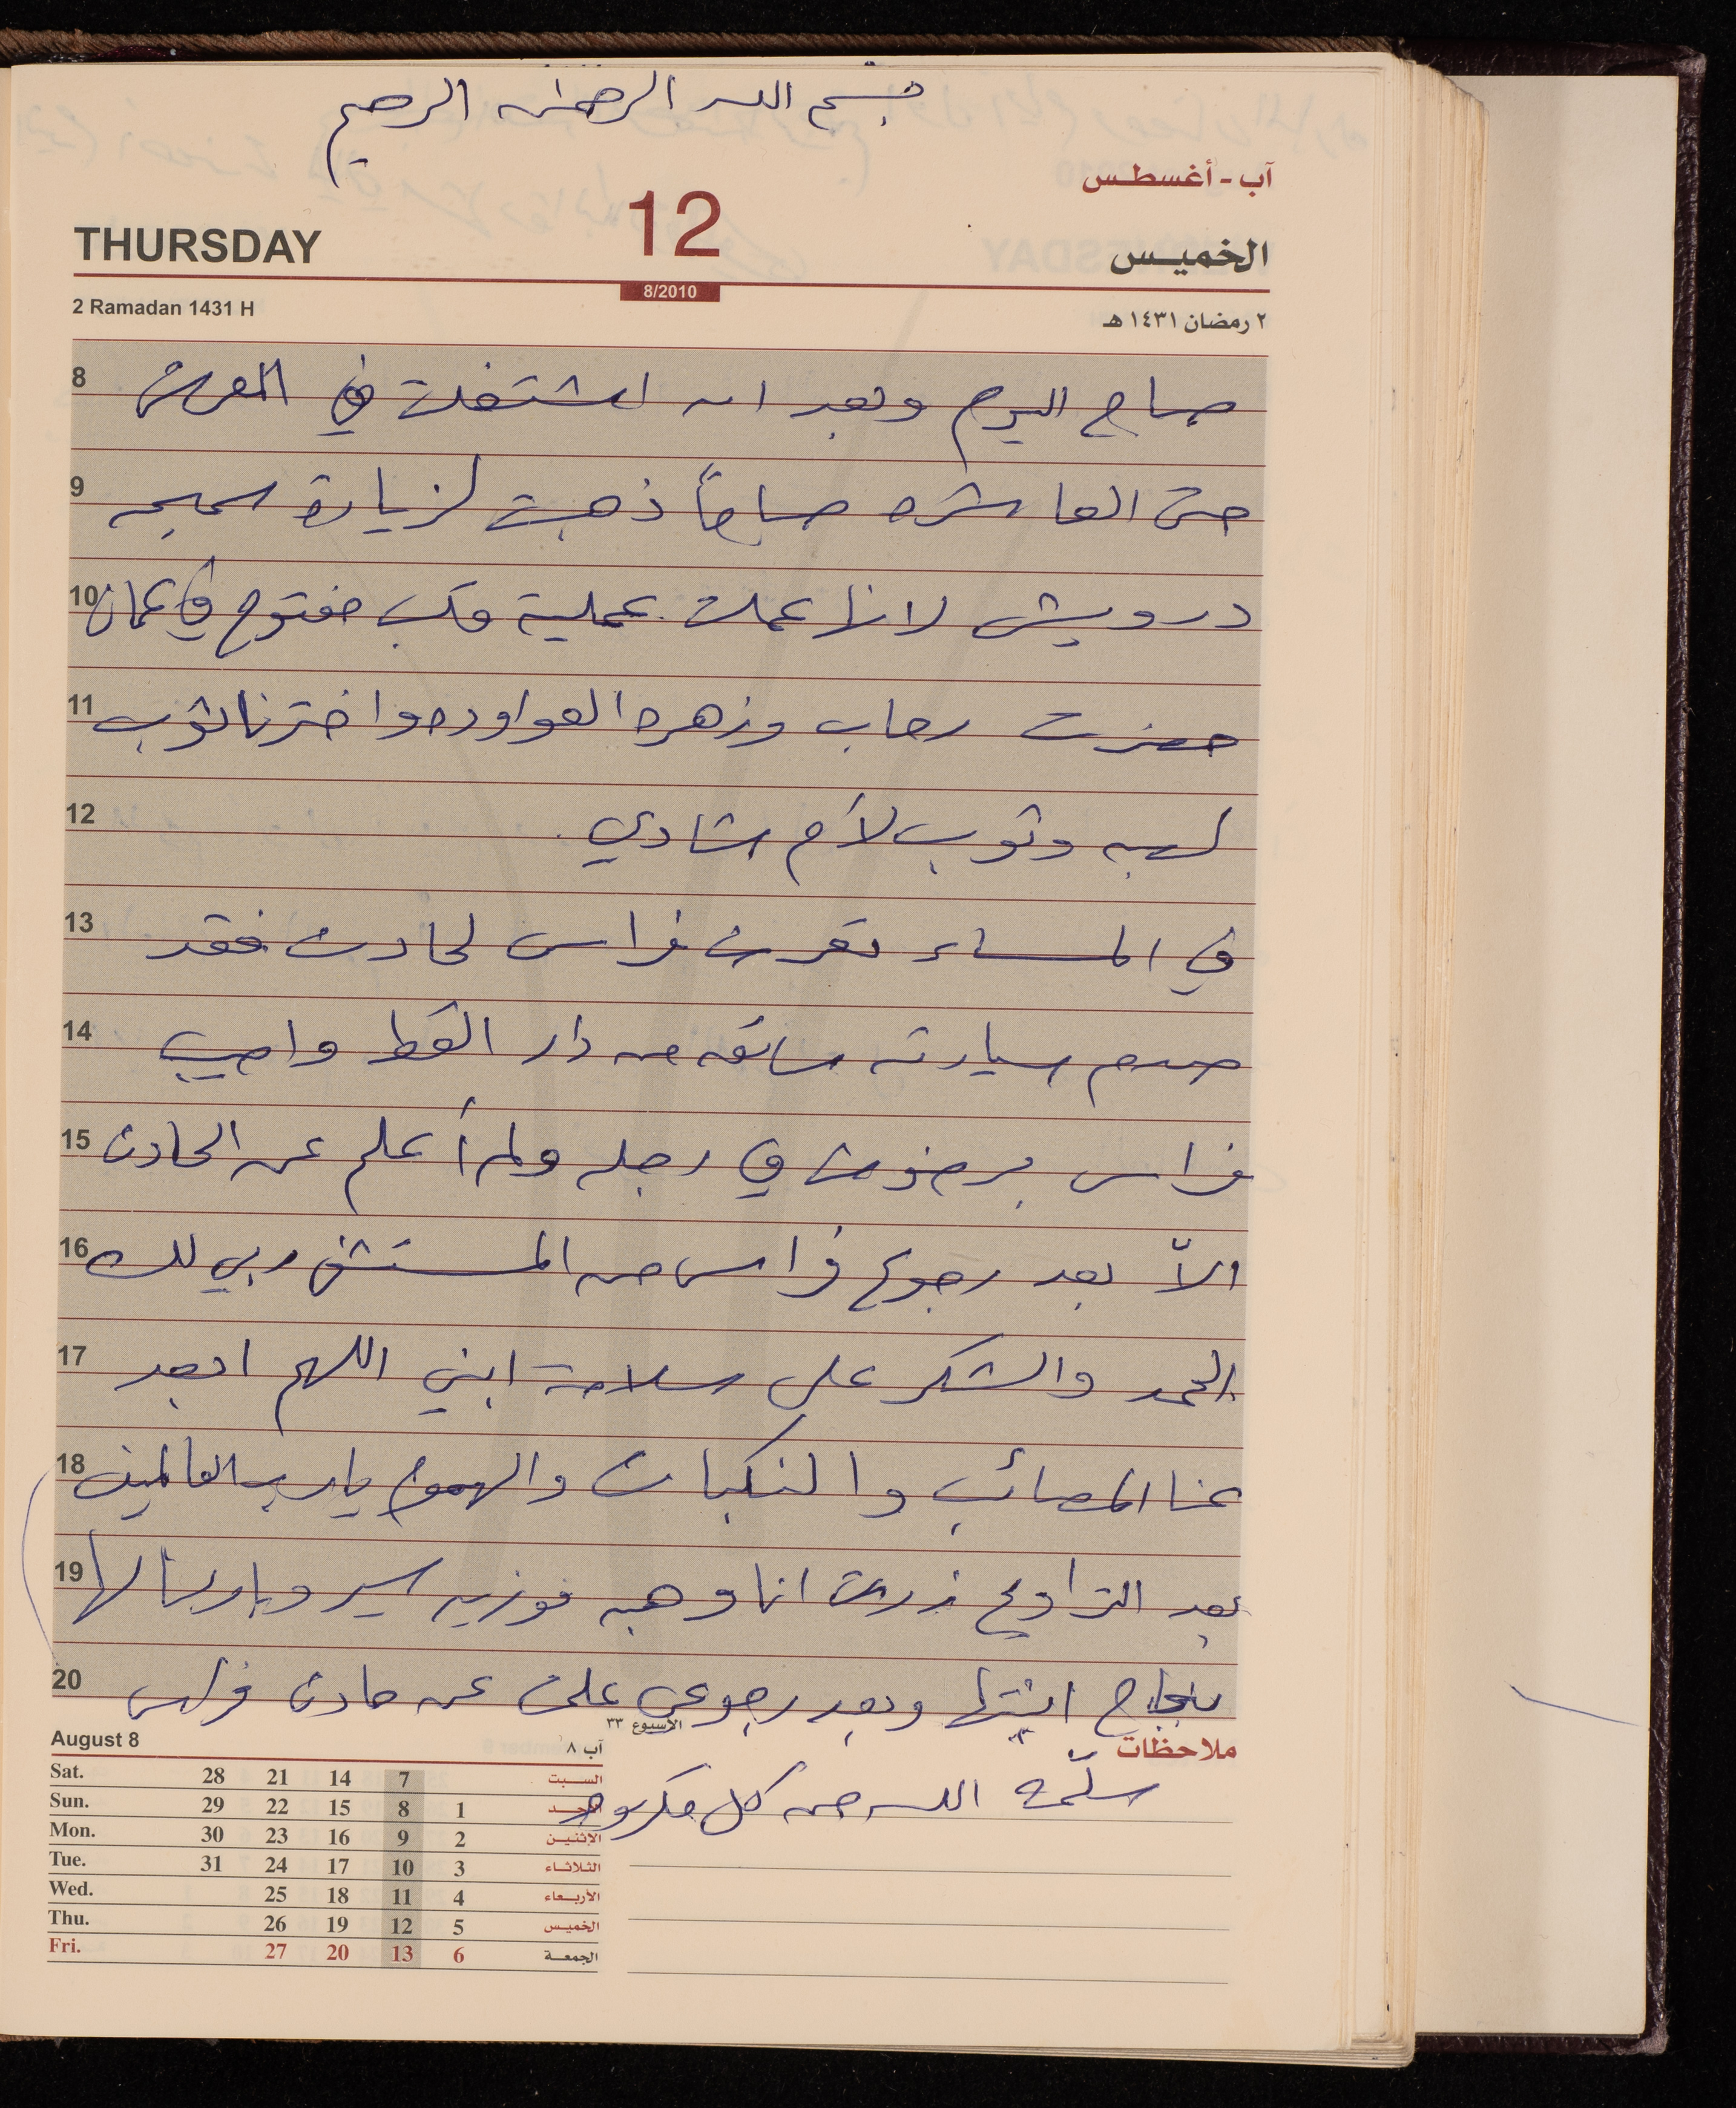 بسم الله الرحمن الرحيم
آب - أغسطس
THURSDAY 12 الخميس
2 Ramadan 1431 H 8/2010 ٢ رمضان ١٤٣١ هـ
8 صباح اليوم وبعد ان اشتغلت في
9 حتى العاشره صباحاً ذهبت لزيارة سميحه
10 درويش لانها عملت عملية قلب مفتوح في عمان
11 حضرت رحاب وزهره العواوده واخترنا ثوب
12 لهبه وثوب لأم شادي.
13 في المساء تعرض فراس لحادث فقد
14 صدم سيارته سائقه من دار القط واصيب
15 فراس برضوض في رجله ولم أعلم عن الحادث
16 الاّ بعد رجوع فراس من المستشفى ربي لك
17 الحمد والشكر على سلامة ابني اللهم ابعد
18 عنا المصائب والنكبات والهموم يارب العالمين
19 بعد التراويح زرت انا وهبه فوزيه وباركنا لها
20 بنجاح ابنتها وبعد رجوعي علمت عن حادث فراس
الأسبوع ٣٣
ملاحظات
سلّمه الله من كل مكروه
August 8 آب ٨
Sat. 28 21 14 7 السبت
Sun. 29 22 15 8 1 الأحد
Mon. 30 23 16 9 2 الإثنين
Tue. 31 24 17 10 3 الثلاثاء
Wed. 25 18 11 4 الأربعاء
Thu. 26 19 12 5 الخميس
Fri. 27 20 13 6 الجمعة